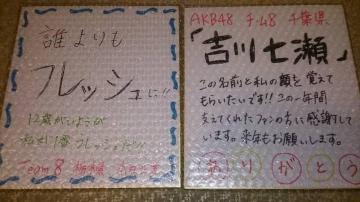 誰よりも
フレッシュに!!
12歳がいようが
私が1番フレッシュだ!!
Team 8
AKB48 チーム8 千葉県
「吉川七瀬」
この名前と私の顔を覚えて
もらいたいです!!この一年間
支えてくれたファンの方に感謝して
います。来年もお願いします。
ありがとう